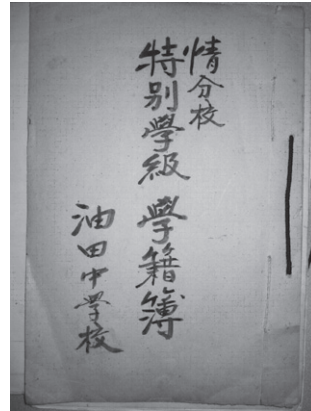 情分校
特別學級 學籍簿
油田中学校